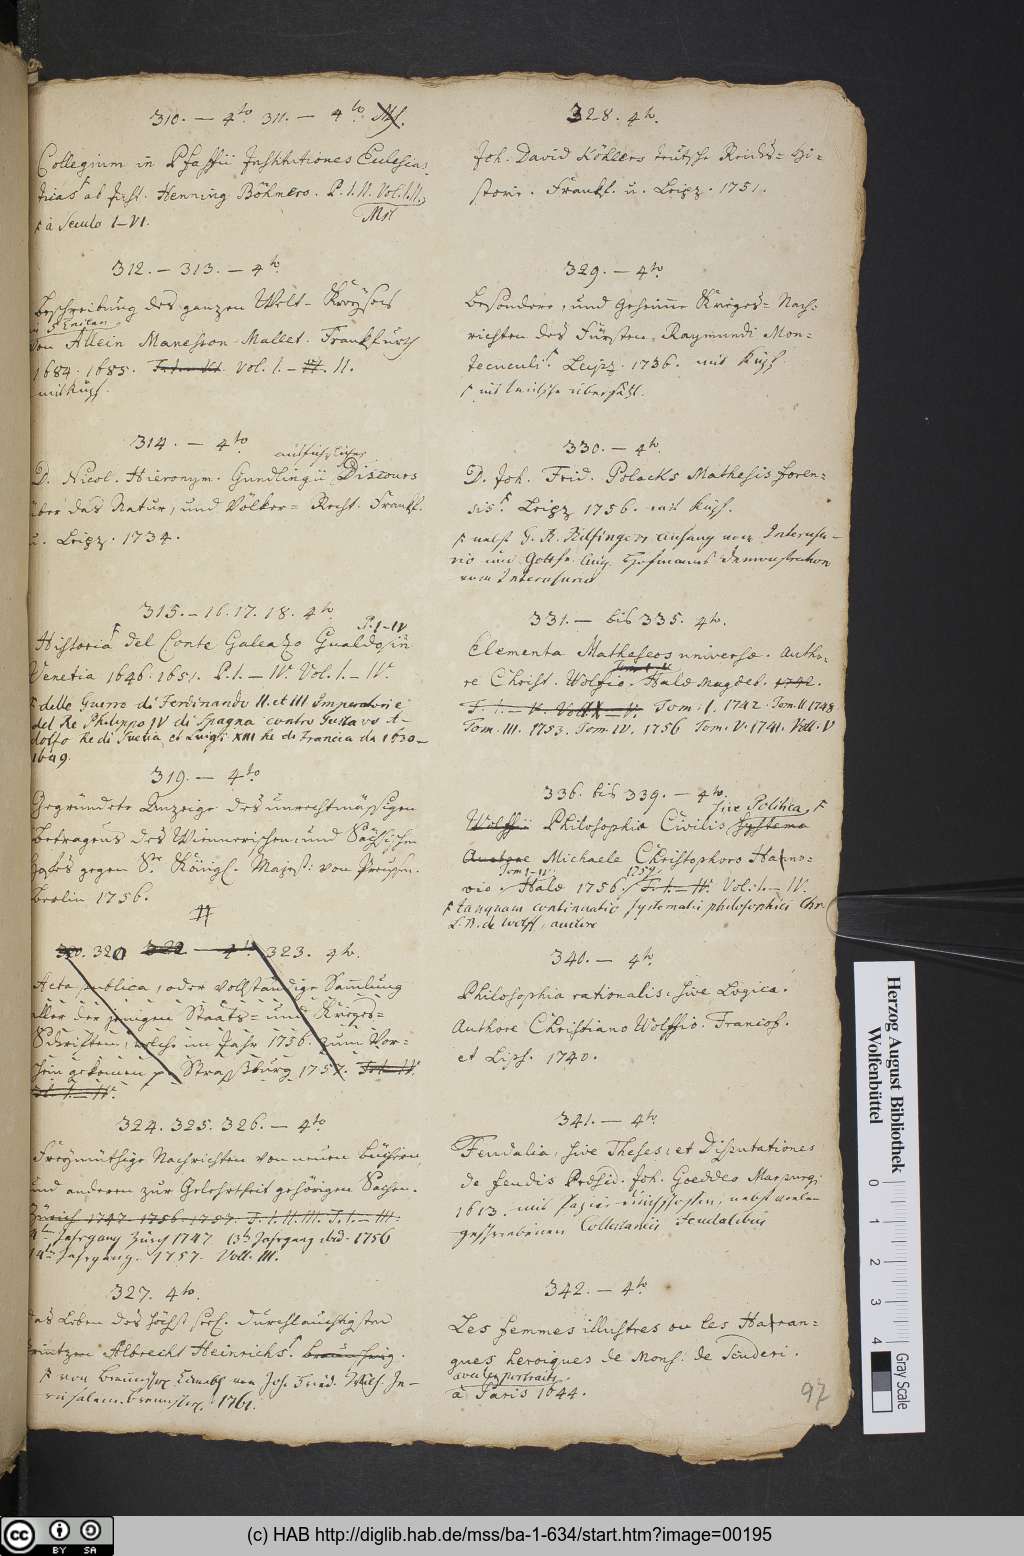 310. — 4to 311. — 4to
Collegium in Pfaffii Institutiones Ecclesias
ticas ab Just. Henning Böhmero. P. I. II. Vol. I. II.
à Seculo I–VI.
Mst
312. — 313. — 4to
Beschreibung des ganzen Welt-Kreyses
in 5 Theilen
von Allein Manesson Mallet. Frankfurth
1684. 1685. Vol. I. – II.
mit Kupf.
314. — 4to
ausführlicher
D. Nicol. Hieronym. Gundlingii Discours
über das Natur, und Völker-Recht. Frankf.
u. Leipz. 1734.
315. – 16. 17. 18. 4to
P. I–IV
Historia del Conte Galeazo Gualdo, in
Venetia 1646. 1651. P. I. – IV. Vol. I. – IV.
delle Guerre di Ferdinando II. et III Imperatori e
del Re Philippo IV di Spagna contro Gustavo A-
dolfo Re di Suetia, et Luigi XIII Re di Francia da 1630–
1649.
319. — 4to
Gegründete Anzeige des unrechtmäßigen
Betragens des Wienerischen und Sächsischen
Hofes gegen Sr. Königl. Majest: von Preußen.
Berlin 1756.
320. 320 322 — 4to 323. 4to.
Acta publica, oder vollständige Samlung
aller der jenigen Staats- und Kriegs-
Schriften, welche im Jahr 1756. zum Vor-
schein gekomen Straßburg 1757.
324. 325. 326. — 4to
Freymüthige Nachrichten von neuen Büchern,
und anderen zur Gelehrtheit gehörigen Sachen.
Zürich 1747. 1756. 1757. T. I. II. III. T. I. – III.
4ter Jahrgang Zürch 1747. 13ter Jahrgang ibid. 1756
14ter Jahrgang. 1757. Voll. III.
327. 4to.
das Leben des höchst seel. durchlauchtigsten
Printzen Albrecht Heinrichs. Braunschweig.
von Braunschw. Lüneb. von Joh. Fried. Wilh. Je-
rusalem. Braunschw. 1761.
328. 4to.
Joh. David Köhlers teutsche Reichs-Hi-
storie. Frankf. u. Leipz. 1751.
329. — 4to
Besondere, und geheime Krieges-Nach-
richten des Fürsten Raymundi Mon-
tecuculi. Leipz. 1736. mit Kupf.
ins teutsche übersetzt.
330. — 4to.
D. Joh. Frid. Polacks Mathesis foren-
sis. Leipz 1756. mit Kupf.
nebst G. B. Bilfingers Anhang vom Interusu-
rio und Gottfr. Aug. Hofmanns Demonstration
vom Interusurio
331. — bis 335. 4to.
Elementa Matheseos universæ. Autho-
re Christ. Wolfio. Halæ Magdeb. 1742.
Tom. I. 1742. Tom. II 1748
Tom. III. 1753. Tom. IV. 1756 Tom. V. 1741. Voll. V
336. bis 339. — 4to.
sive Politica
Wolffii Philosophia Civilis Systema
Auctore Michaele Christophoro Hanno-
Tom I–IV. 1759.
vio. Halæ 1756. T. I. – IV. Vol. I. – IV.
tanquam continuatio systematis philosophici Chr.
L. B. de Wolff, auctore
340. — 4to.
Philosophia rationalis, sive Logica.
Authore Christiano Wolffio. Francof.
et Lips. 1740.
341. — 4to
Feudalia, sive Theses, et Disputationes
de feudis Præsid. Joh. Goeddeo Marpurgi
1613. mit Papier durchschossen, nebst
geschriebenen Collectaneis feudalibus
342. — 4to
Les femmes illustres ou les Haran-
gues heroiques de Mons. de Scuderi.
avec les portraits
à Paris 1644.
97
Herzog August Bibliothek
Wolfenbüttel
0 1 2 3 4
Gray Scale
cc BY SA
(c) HAB http://diglib.hab.de/mss/ba-1-634/start.htm?image=00195